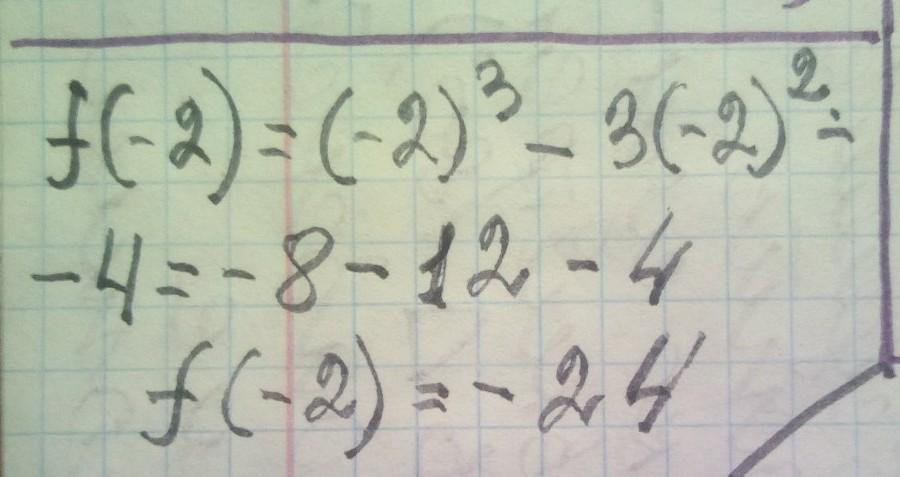 f(-2) = (-2)³ - 3(-2)² -
-4 = -8 - 12 - 4
f(-2) = -24